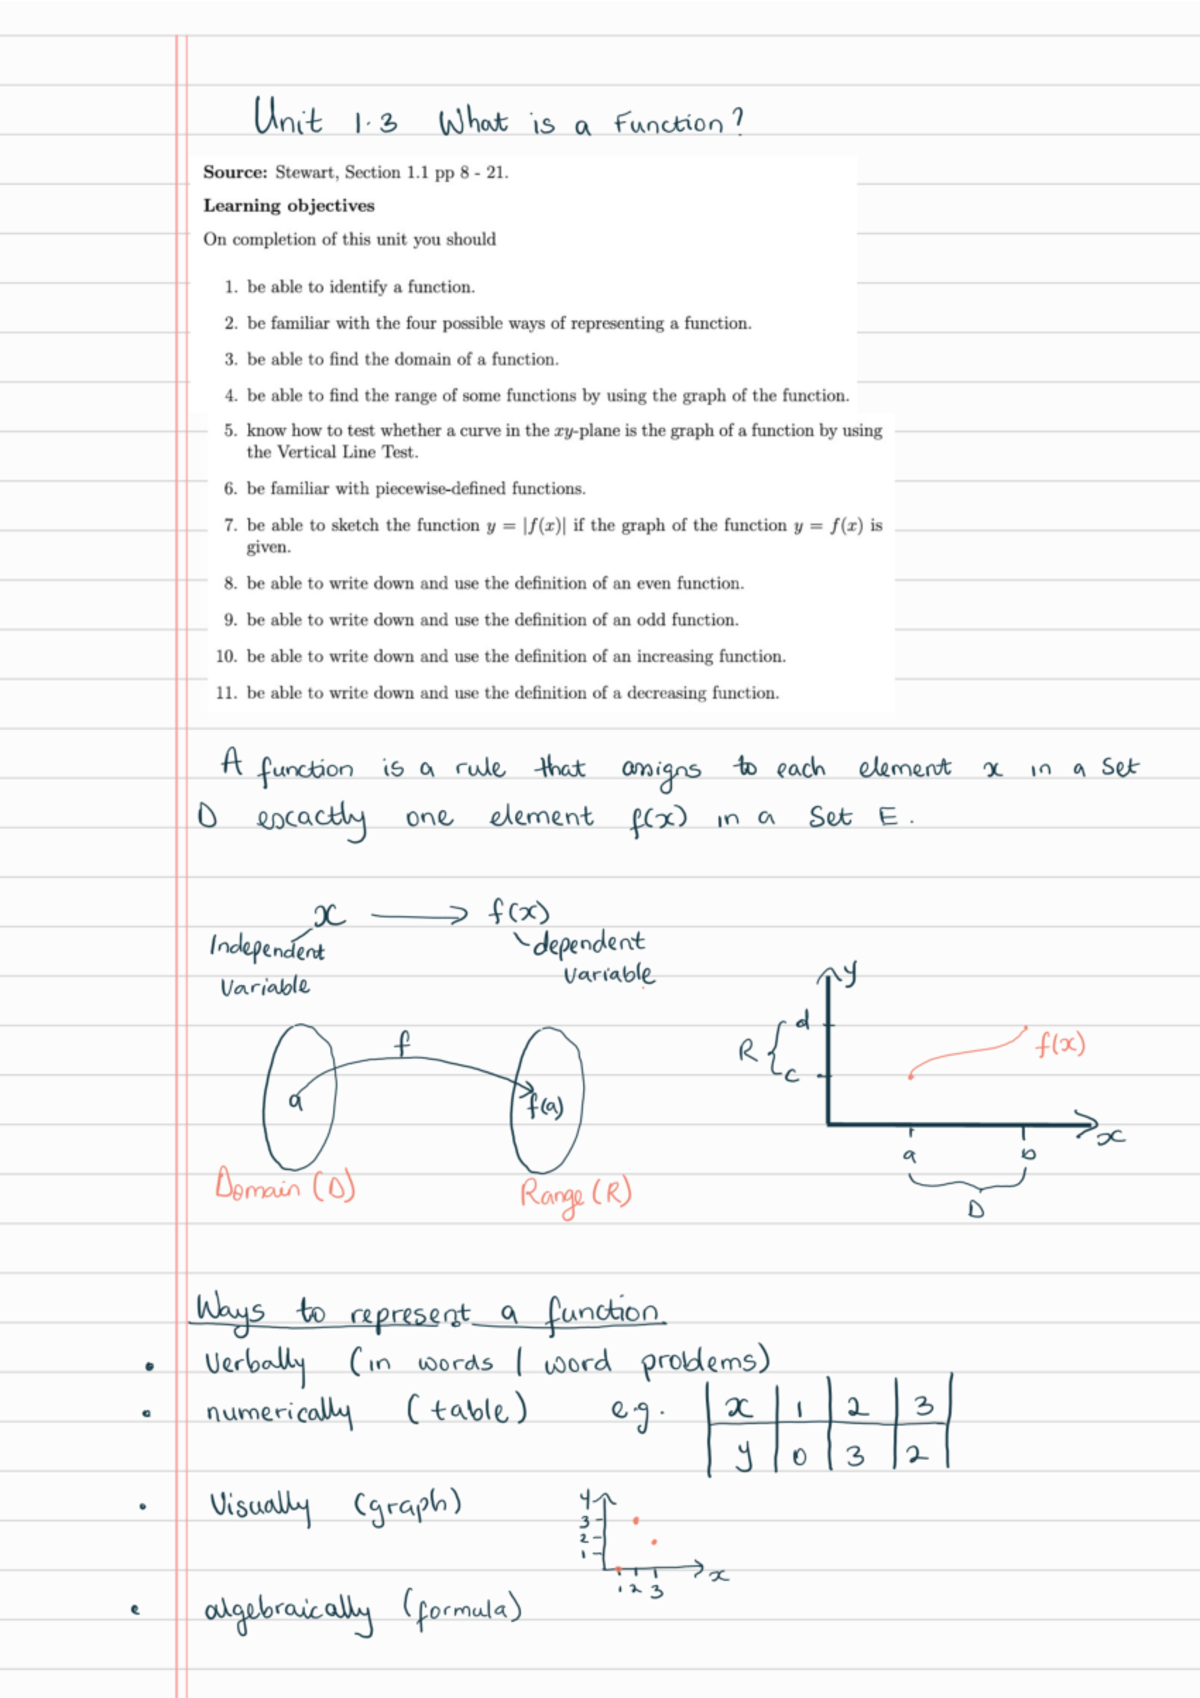 Unit 1.3 What is a Function?
Source: Stewart, Section 1.1 pp 8 - 21.
Learning objectives
On completion of this unit you should
1. be able to identify a function.
2. be familiar with the four possible ways of representing a function.
3. be able to find the domain of a function.
4. be able to find the range of some functions by using the graph of the function.
5. know how to test whether a curve in the xy-plane is the graph of a function by using
the Vertical Line Test.
6. be familiar with piecewise-defined functions.
7. be able to sketch the function y = |f(x)| if the graph of the function y = f(x) is
given.
8. be able to write down and use the definition of an even function.
9. be able to write down and use the definition of an odd function.
10. be able to write down and use the definition of an increasing function.
11. be able to write down and use the definition of a decreasing function.
A function is a rule that assigns to each element x in a Set
D excactly one element f(x) in a Set E.
x → f(x)
Independent
Variable
dependent
variable
f
a
f(a)
Domain (D)
Range (R)
y
d
R {
c
f(x)
x
a b
D
Ways to represent a function
• Verbally (in words / word problems)
• numerically (table) e.g.
x 1 2 3
y 0 3 2
• Visually (graph)
y
3
2
1
1 2 3
x
• algebraically (formula)